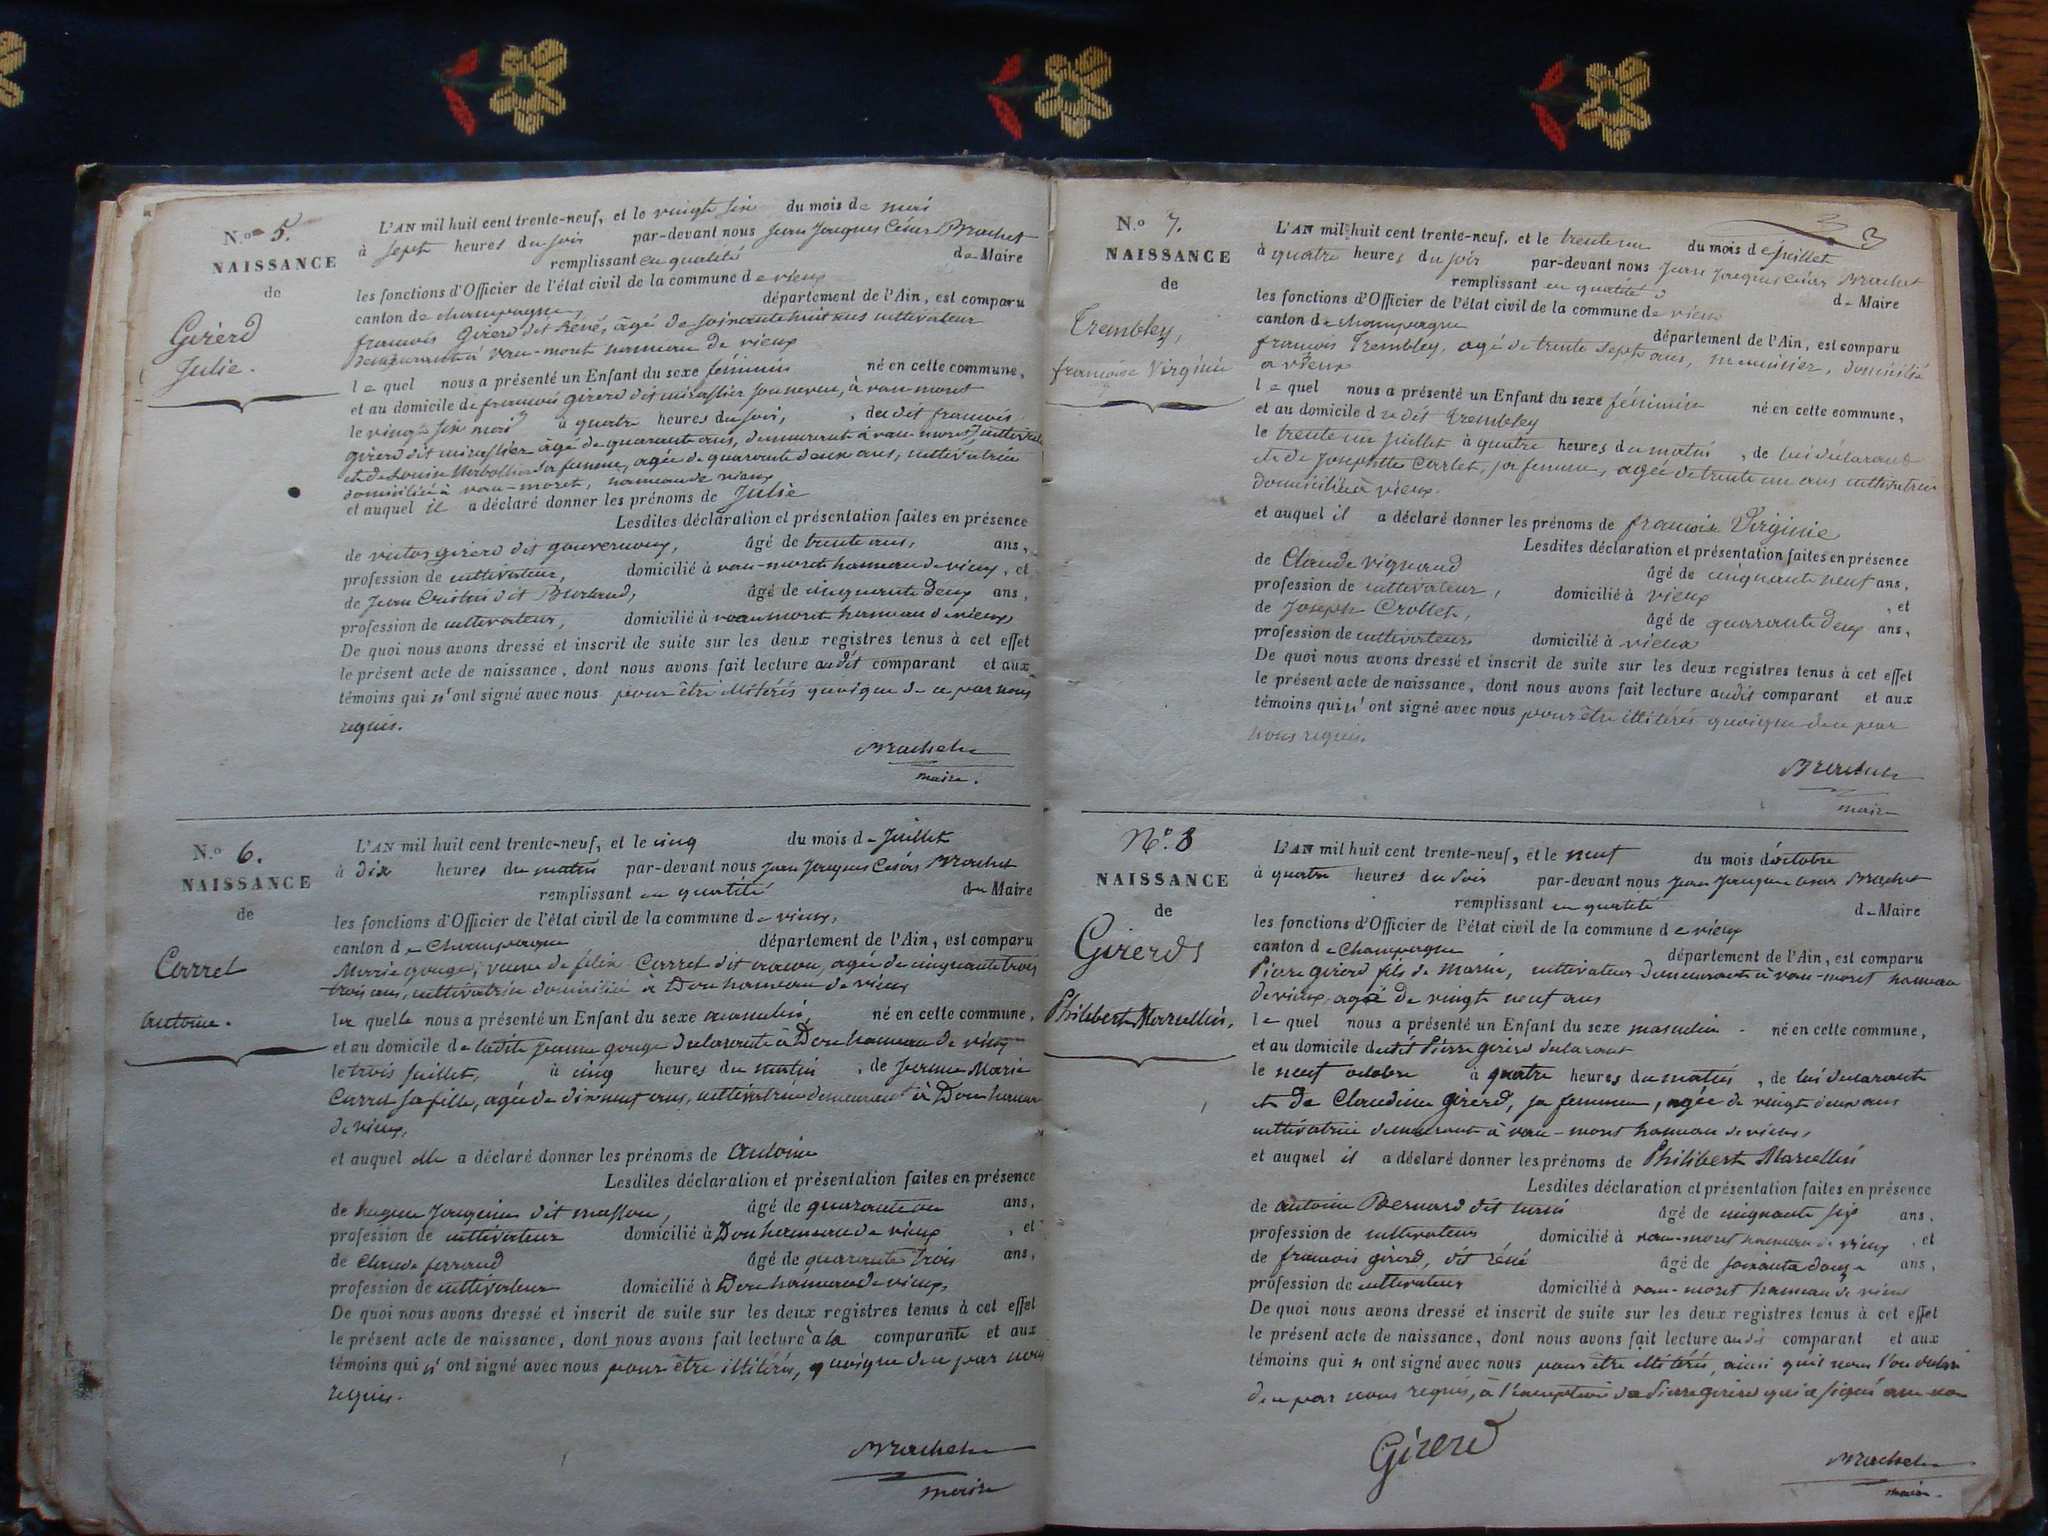 N.o 5.
NAISSANCE
de
Girerd
Julie.
L'AN mil huit cent trente-neuf, et le vingt six du mois de mai
à sept heures du soir par-devant nous Jean Jacques César Brachet
remplissant en qualité de Maire
les fonctions d'Officier de l'état civil de la commune de vieux
canton de champagne, département de l'Ain, est comparu
francois Girerd dit René, âgé de soixante huit ans cultivateur
Demeurant à vau-moret hameau de vieux
le quel nous a présenté un Enfant du sexe féminin né en cette commune,
et au domicile de francois girerd dit son neveu, à vau moret
le vingt six mai à quatre heures du soir, du dit francois
girerd dit âgé de quarante ans, demeurant à vau-moret, cultivateur
et de Louise sa femme, agée de quarante deux ans, cultivatrice
domiciliée à vau-moret, hameau de vieux
et auquel il a déclaré donner les prénoms de Julie
Lesdites déclaration et présentation faites en présence
de victor girerd dit gouvernoux, âgé de trente ans, ans,
profession de cultivateur, domicilié à vau-moret hameau de vieux, et
de Jean dit âgé de cinquante deux ans,
profession de cultivateur, domicilié à vaumoret hameau de vieux
De quoi nous avons dressé et inscrit de suite sur les deux registres tenus à cet effet
le présent acte de naissance, dont nous avons fait lecture audit comparant et aux
témoins qui n'ont signé avec nous pour être illitérés quoique de ce par nous
requis.
Brachet
maire.
N.o 6.
NAISSANCE
de
Carret
antoine.
L'AN mil huit cent trente-neuf, et le cinq du mois de Juillet
à dix heures du matin par-devant nous Jean Jacques César Brachet
remplissant en qualité de Maire
les fonctions d'Officier de l'état civil de la commune de vieux,
canton de Champagne département de l'Ain, est comparu
Marie gouge, veuve de félix Carret dit agée de cinquante trois
trois ans, cultivatrice domiciliée à Don hameau de vieux
la quelle nous a présenté un Enfant du sexe masculin, né en cette commune,
et au domicile de ladite jeanne gouge déclarante à Don hameau de vieux
le trois Juillet, à cinq heures du matin, de Jeanne Marie
Carret sa fille, agée de dix neuf ans, cultivatrice demeurant à Don hameau
de vieux,
et auquel elle a déclaré donner les prénoms de Antoine
Lesdites déclaration et présentation faites en présence
de hugues Jouguin dit masson, âgé de quarante un ans,
profession de cultivateur domicilié à Don hameau de vieux, et
de Claude ferrand âgé de quarante trois ans,
profession de cultivateur domicilié à Don hameau de vieux,
De quoi nous avons dressé et inscrit de suite sur les deux registres tenus à cet effet
le présent acte de naissance, dont nous avons fait lecture à la comparante et aux
témoins qui n'ont signé avec nous pour être illitérés, quoique de ce par nous
requis.
Brachet
maire
3
N.o 7.
NAISSANCE
de
Trembley,
francoise Virginie
L'AN mil huit cent trente-neuf, et le trente un du mois de juillet
à quatre heures du soir par-devant nous Jean Jacques César Brachet
remplissant en qualité de Maire
les fonctions d'Officier de l'état civil de la commune de vieux
canton de champagne département de l'Ain, est comparu
francois Trembley, agé de trente sept ans, menuisier, domicilié
à vieux
le quel nous a présenté un Enfant du sexe féminin né en cette commune,
et au domicile du dit Trembley
le trente un juillet à quatre heures du matin, de lui déclarant
et de Josephte Carlet, sa femme, agée de trente un ans cultivatrice
domiciliée à vieux.
et auquel il a déclaré donner les prénoms de francoise Virginie
Lesdites déclaration et présentation faites en présence
de Claude vignand âgé de cinquante neuf ans,
profession de cultivateur, domicilié à vieux, et
de Joseph Crollet, âgé de quarante deux ans,
profession de cultivateur domicilié à vieux
De quoi nous avons dressé et inscrit de suite sur les deux registres tenus à cet effet
le présent acte de naissance, dont nous avons fait lecture audit comparant et aux
témoins qui n'ont signé avec nous pour être illitérés quoique de ce par
nous requis.
Brachet
maire
N.o 8
NAISSANCE
de
Girerd
Philibert Marcellin,
L'AN mil huit cent trente-neuf, et le neuf du mois d'octobre
à quatre heures du soir par-devant nous Jean Jacques César Brachet
remplissant en qualité de Maire
les fonctions d'Officier de l'état civil de la commune de vieux
canton de Champagne département de l'Ain, est comparu
Pierre girerd fils de marin, cultivateur demeurant à vau-moret hameau
de vieux agé de vingt neuf ans
le quel nous a présenté un Enfant du sexe masculin né en cette commune,
et au domicile dudit Pierre girerd declarant
le neuf octobre à quatre heures du matin, de lui déclarant
et de Claudine girerd, sa femme, agée de vingt deux ans
cultivatrice demeurant à vau-moret hameau de vieux,
et auquel il a déclaré donner les prénoms de Philibert Marcellin
Lesdites déclaration et présentation faites en présence
de antoine Bernard dit âgé de cinquante six ans,
profession de cultivateur domicilié à vau-moret hameau de vieux, et
de francois girerd, dit réné âgé de soixante douze ans,
profession de cultivateur domicilié à vau-moret hameau de vieux
De quoi nous avons dressé et inscrit de suite sur les deux registres tenus à cet effet
le présent acte de naissance, dont nous avons fait lecture audit comparant et aux
témoins qui n ont signé avec nous pour être illitérés, ainsi qu'il nous l'on déclaré
de ce par nous requis, à l'exception de Pierre girerd qui a signé avec nous
Girerd
Brachet
maire.